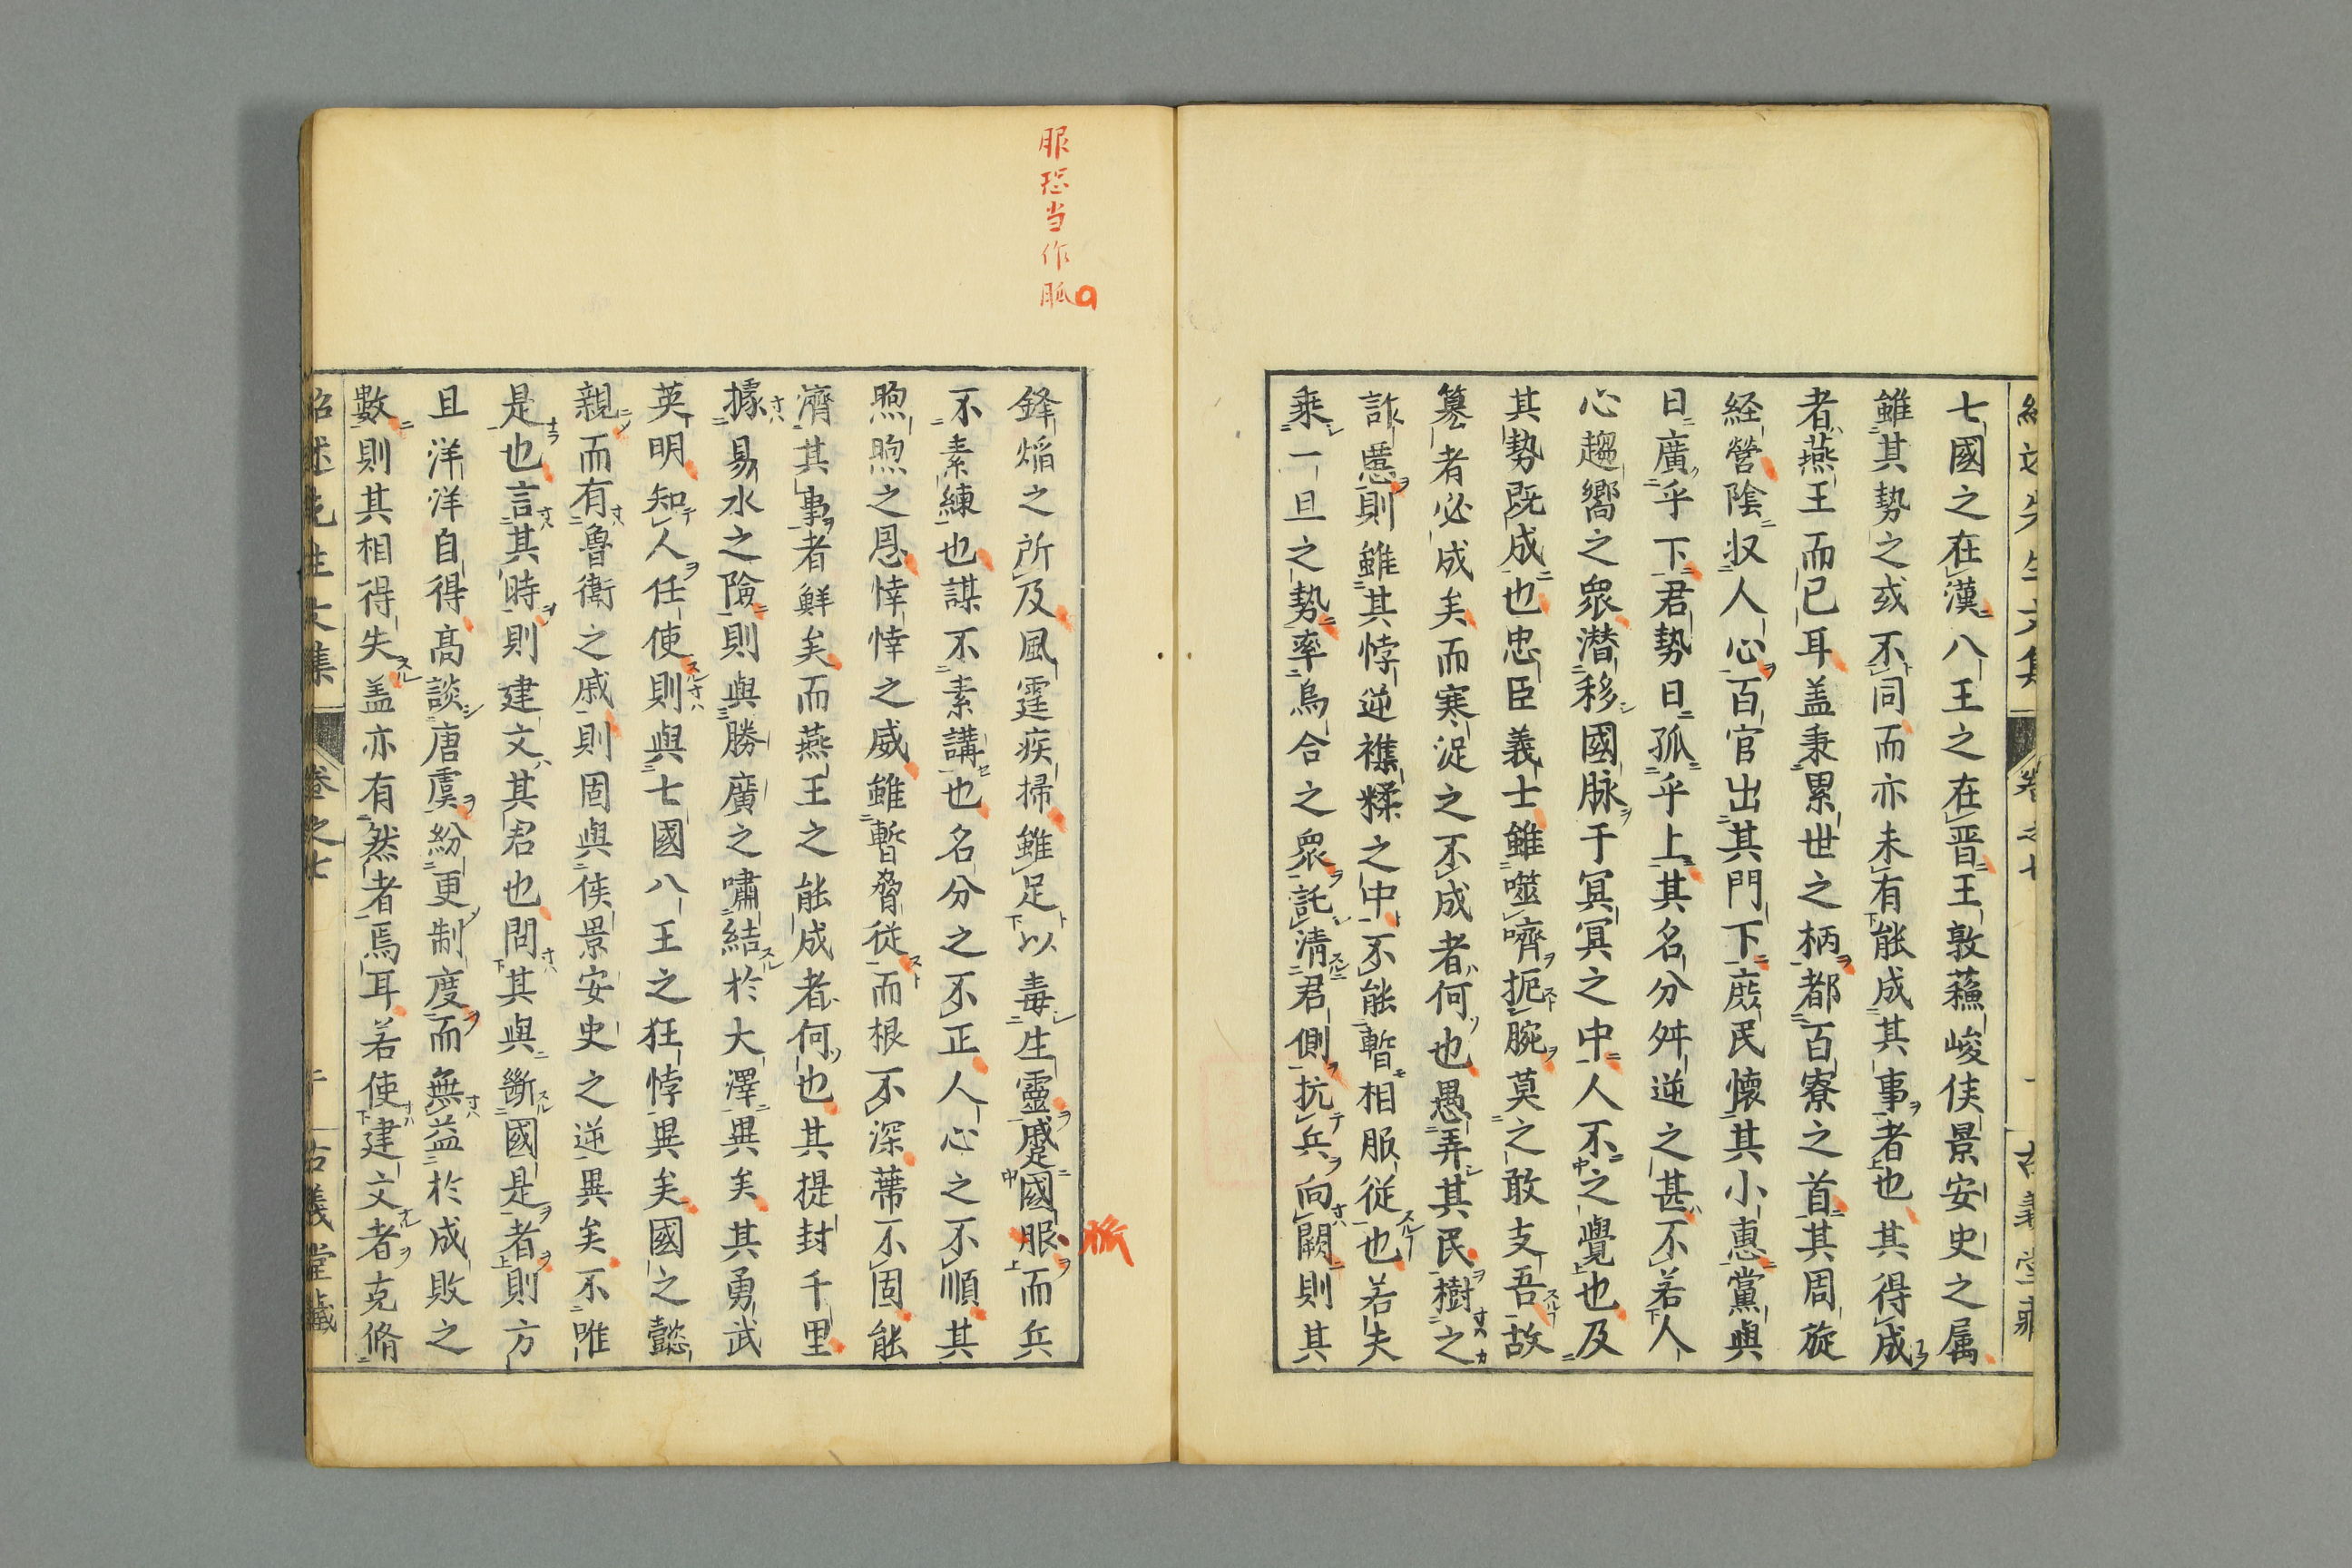 七國之在漢八王之在晋王敦蘓峻侯景安史之属
雖其勢之或不同而亦未有能成其事者也其得成
者燕王而已耳盖秉累世之柄都百寮之首其周旋
経營陰収人心百官出其門下庻民懷其小惠黨與
日廣乎下君勢日孤乎上其名分舛逆之甚不若人
心趨嚮之衆潜移國脉于冥冥之中人不之覺也及
其勢既成也忠臣義士雖噬嚌扼腕莫之敢支吾故
簒者必成矣而寒浞之不成者何也愚弄其民樹之
詐慝則雖其悖逆襍糅之中不能暫相服従也若夫
乘一旦之勢率烏合之衆託清君側抗兵向闕則其
服恐当作脤
鋒焰之所及風霆疾掃雖足以毒生靈蹙國服而兵
脤
不素練也謀不素講也名分之不正人心之不順其
煦煦之恩悻悻之威雖暫脅従而根不深蔕不固能
濟其事者鮮矣而燕王之能成者何也其提封千里
據易水之險則與勝廣之嘯結於大澤異矣其勇武
英明知人任使則與七國八王之狂悖異矣國之懿
親而有魯衛之戚則固與侯景安史之逆異矣不唯
是也言其時則建文其君也問其與斷國是者則方
且洋洋自得高談唐虞紛更制度而無益於成敗之
數則其相得失盖亦有然者焉耳若使建文者克脩
紹述先生文集 卷之七 古義堂藏